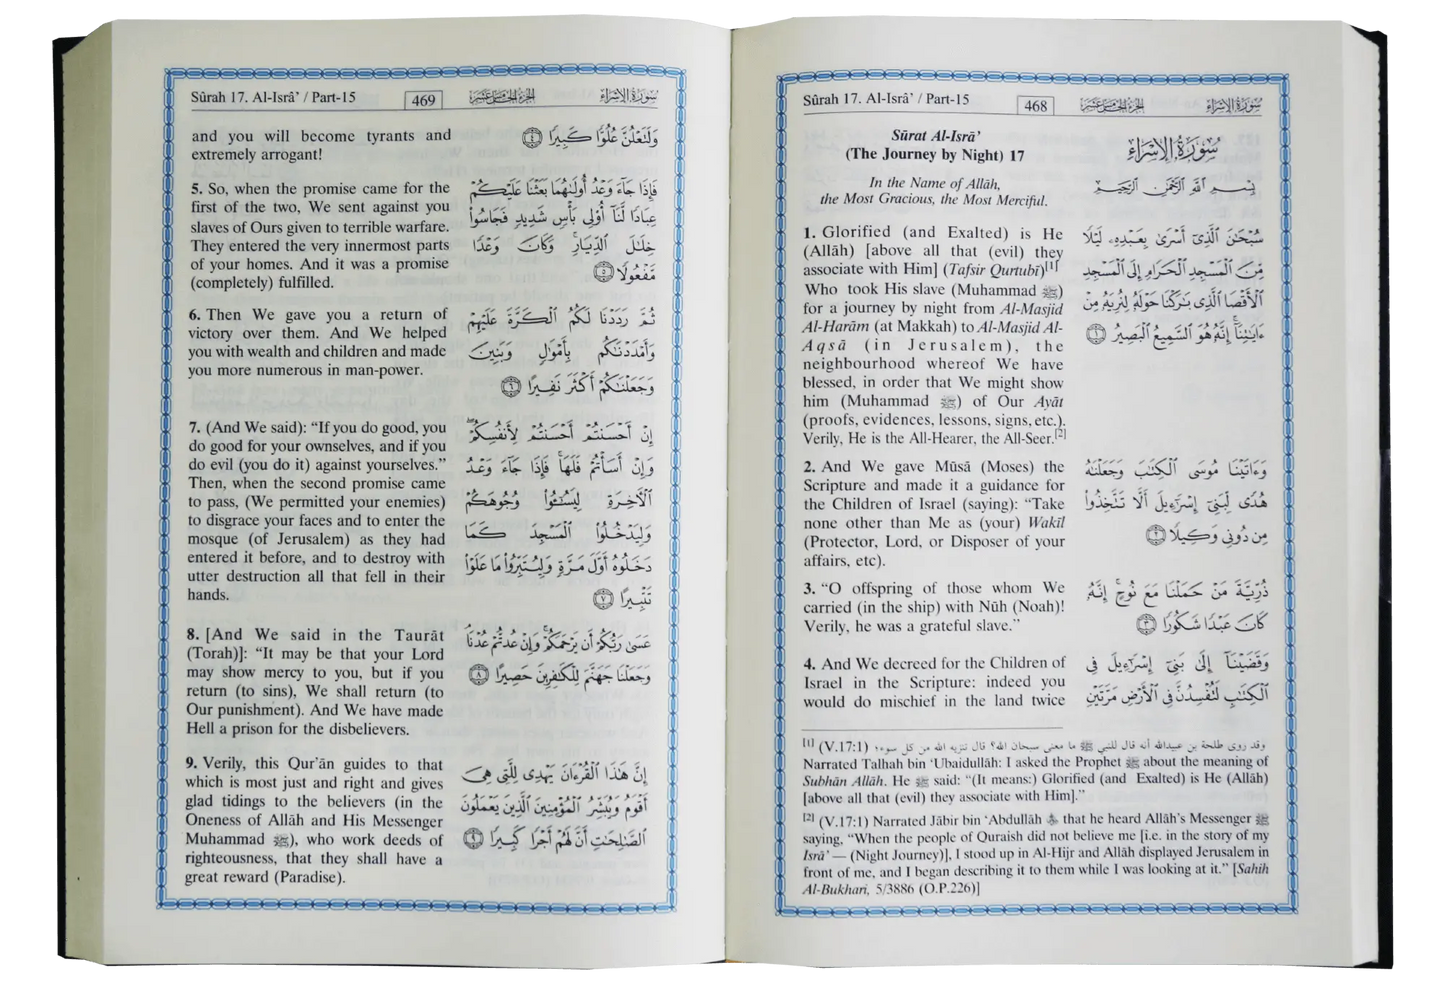 Sûrah 17. Al-Isrâ’ / Part-15
468
الجزء الخامس عشر
سورة الإسراء
Sūrat Al-Isrā’
(The Journey by Night) 17
In the Name of Allāh,
the Most Gracious, the Most Merciful.
1. Glorified (and Exalted) is He
(Allāh) [above all that (evil) they
associate with Him] (Tafsir Qurtubī)[1]
Who took His slave (Muhammad ﷺ)
for a journey by night from Al-Masjid
Al-Harām (at Makkah) to Al-Masjid Al-
Aqsā (in Jerusalem), the
neighbourhood whereof We have
blessed, in order that We might show
him (Muhammad ﷺ) of Our Ayāt
(proofs, evidences, lessons, signs, etc.).
Verily, He is the All-Hearer, the All-Seer.[2]
2. And We gave Mūsā (Moses) the
Scripture and made it a guidance for
the Children of Israel (saying): “Take
none other than Me as (your) Wakīl
(Protector, Lord, or Disposer of your
affairs, etc).
3. “O offspring of those whom We
carried (in the ship) with Nūh (Noah)!
Verily, he was a grateful slave.”
4. And We decreed for the Children of
Israel in the Scripture: indeed you
would do mischief in the land twice
سُورَةُ الإِسْرَاءِ
بِسْمِ ٱللَّهِ ٱلرَّحْمَٰنِ ٱلرَّحِيمِ
سُبْحَٰنَ ٱلَّذِىٓ أَسْرَىٰ بِعَبْدِهِۦ لَيْلًا
مِّنَ ٱلْمَسْجِدِ ٱلْحَرَامِ إِلَى ٱلْمَسْجِدِ
ٱلْأَقْصَا ٱلَّذِى بَٰرَكْنَا حَوْلَهُۥ لِنُرِيَهُۥ مِنْ
ءَايَٰتِنَآ ۚ إِنَّهُۥ هُوَ ٱلسَّمِيعُ ٱلْبَصِيرُ ١
وَءَاتَيْنَا مُوسَى ٱلْكِتَٰبَ وَجَعَلْنَٰهُ
هُدًى لِّبَنِىٓ إِسْرَٰٓءِيلَ أَلَّا تَتَّخِذُوا۟
مِن دُونِى وَكِيلًا ٢
ذُرِّيَّةَ مَنْ حَمَلْنَا مَعَ نُوحٍ ۚ إِنَّهُۥ
كَانَ عَبْدًا شَكُورًا ٣
وَقَضَيْنَآ إِلَىٰ بَنِىٓ إِسْرَٰٓءِيلَ فِى
ٱلْكِتَٰبِ لَتُفْسِدُنَّ فِى ٱلْأَرْضِ مَرَّتَيْنِ
[1] (V.17:1) وقد روى طلحة بن عبيدالله أنه قال للنبي ﷺ ما معنى سبحان الله؟ قال تنزيه الله من كل سوء؛
Narrated Talhah bin ‘Ubaidullāh: I asked the Prophet ﷺ about the meaning of
Subhān Allāh. He ﷺ said: “(It means:) Glorified (and Exalted) is He (Allāh)
[above all that (evil) they associate with Him].”
[2] (V.17:1) Narrated Jābir bin ‘Abdullāh that he heard Allāh’s Messenger ﷺ
saying, “When the people of Quraish did not believe me [i.e. in the story of my
Isrā’ — (Night Journey)], I stood up in Al-Hijr and Allāh displayed Jerusalem in
front of me, and I began describing it to them while I was looking at it.” [Sahih
Al-Bukhari, 5/3886 (O.P.226)]
Sûrah 17. Al-Isrâ’ / Part-15
469
الجزء الخامس عشر
سورة الإسراء
and you will become tyrants and
extremely arrogant!
5. So, when the promise came for the
first of the two, We sent against you
slaves of Ours given to terrible warfare.
They entered the very innermost parts
of your homes. And it was a promise
(completely) fulfilled.
6. Then We gave you a return of
victory over them. And We helped
you with wealth and children and made
you more numerous in man-power.
7. (And We said): “If you do good, you
do good for your ownselves, and if you
do evil (you do it) against yourselves.”
Then, when the second promise came
to pass, (We permitted your enemies)
to disgrace your faces and to enter the
mosque (of Jerusalem) as they had
entered it before, and to destroy with
utter destruction all that fell in their
hands.
8. [And We said in the Taurāt
(Torah)]: “It may be that your Lord
may show mercy to you, but if you
return (to sins), We shall return (to
Our punishment). And We have made
Hell a prison for the disbelievers.
9. Verily, this Qur’ān guides to that
which is most just and right and gives
glad tidings to the believers (in the
Oneness of Allāh and His Messenger
Muhammad ﷺ), who work deeds of
righteousness, that they shall have a
great reward (Paradise).
وَلَتَعْلُنَّ عُلُوًّا كَبِيرًا ٤
فَإِذَا جَآءَ وَعْدُ أُولَىٰهُمَا بَعَثْنَا عَلَيْكُمْ
عِبَادًا لَّنَآ أُو۟لِى بَأْسٍ شَدِيدٍ فَجَاسُوا۟
خِلَٰلَ ٱلدِّيَارِ ۚ وَكَانَ وَعْدًا
مَّفْعُولًا ٥
ثُمَّ رَدَدْنَا لَكُمُ ٱلْكَرَّةَ عَلَيْهِمْ
وَأَمْدَدْنَٰكُم بِأَمْوَٰلٍ وَبَنِينَ
وَجَعَلْنَٰكُمْ أَكْثَرَ نَفِيرًا ٦
إِنْ أَحْسَنتُمْ أَحْسَنتُمْ لِأَنفُسِكُمْ ۖ
وَإِنْ أَسَأْتُمْ فَلَهَا ۚ فَإِذَا جَآءَ وَعْدُ
ٱلْءَاخِرَةِ لِيَسُـۥٓـُٔوا۟ وُجُوهَكُمْ
وَلِيَدْخُلُوا۟ ٱلْمَسْجِدَ كَمَا
دَخَلُوهُ أَوَّلَ مَرَّةٍ وَلِيُتَبِّرُوا۟ مَا عَلَوْا۟
تَتْبِيرًا ٧
عَسَىٰ رَبُّكُمْ أَن يَرْحَمَكُمْ ۚ وَإِنْ عُدتُّمْ عُدْنَا ۘ
وَجَعَلْنَا جَهَنَّمَ لِلْكَٰفِرِينَ حَصِيرًا ٨
إِنَّ هَٰذَا ٱلْقُرْءَانَ يَهْدِى لِلَّتِى هِىَ
أَقْوَمُ وَيُبَشِّرُ ٱلْمُؤْمِنِينَ ٱلَّذِينَ يَعْمَلُونَ
ٱلصَّٰلِحَٰتِ أَنَّ لَهُمْ أَجْرًا كَبِيرًا ٩